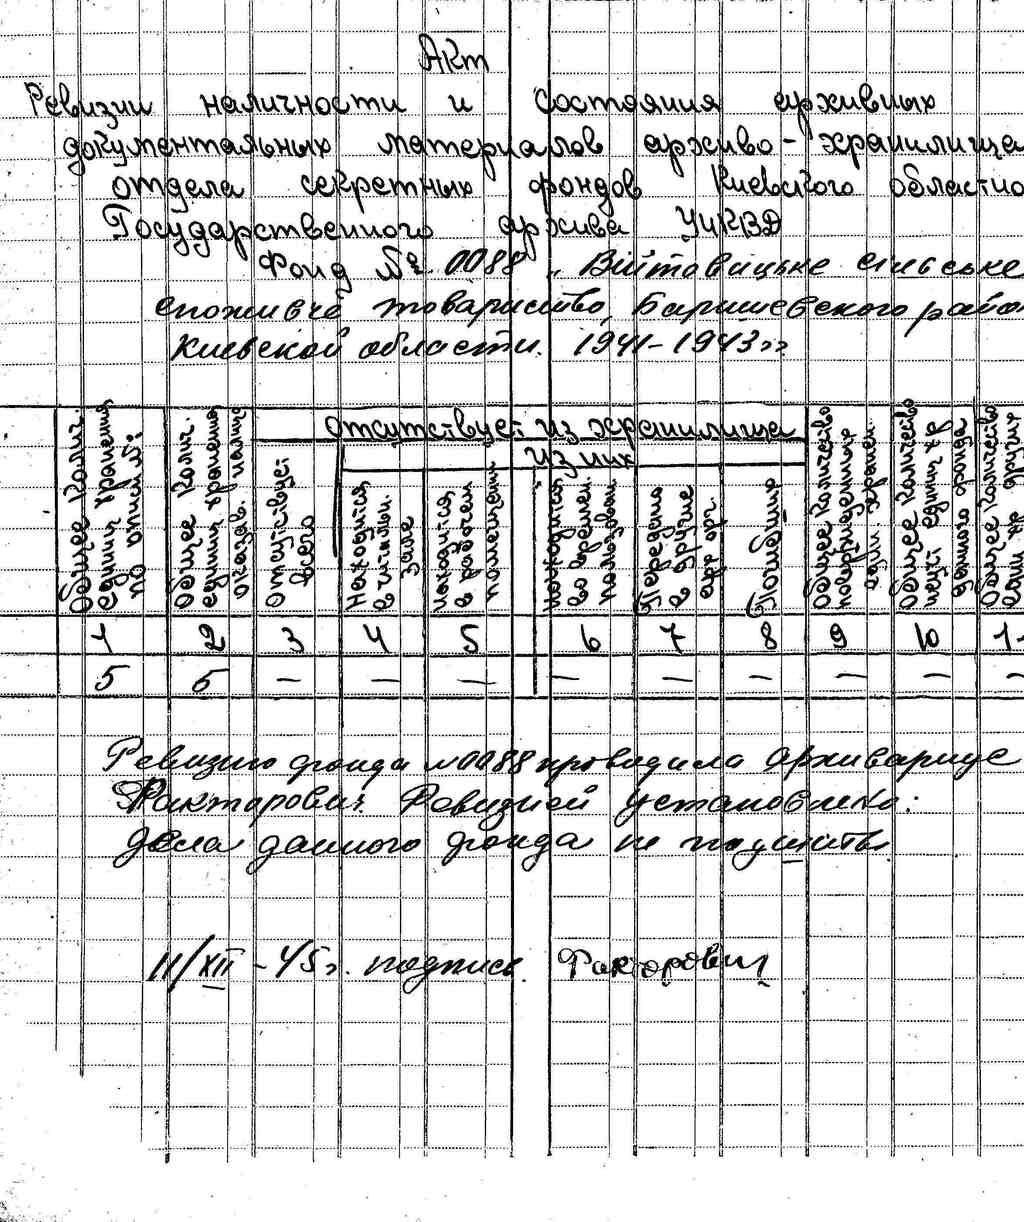 Акт
Ревизии наличности и состояния архивных
документальных материалов архиво-хранилища
отдела секретных фондов Киевского областно
Государственного архива УНКВД
Фонд № 0088 „Війтовицьке сільське
споживче товариство, Баришевского райо
Киевской области. 1941-1943»
Общее колич. единиц хранения по описям:
Общее колич. единиц хранения оказав. налицо
отсутствует из хранилища
Отсутствует всего
из них
Находится в читальн. зале
находится в рабочем помещении
находится во времен. пользован.
Передано в другие арх орг.
Погибших
Общее количество поврежденных един. хранен.
Общее количество данного фонда
Общее количество других
1 2 3 4 5 6 7 8 9 10 1
5 5 — — — — — — — — —
Ревизию фонда № 0088 проводила Архивариус
Факторович. Ревизией установлено:
дела данного фонда не
11/XII-45г. подпись Факторович